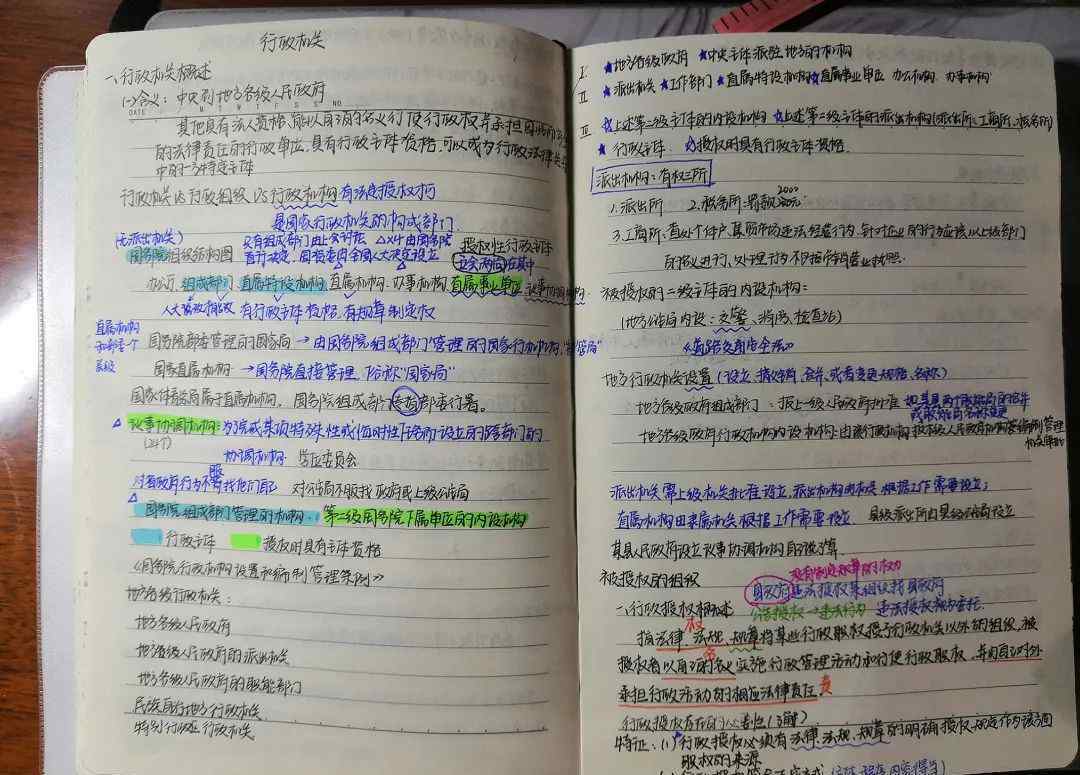 行政机关
一、行政机关概述
(一)含义：中央到地方各级人民政府
DATE
其他具有法人资格，能以自己的名义行使行政权并承担因此
的法律责任的行政单位，具有行政主体资格，可以成为行政法律关系
中的一方特定主体
行政机关 VS 行政组织 VS 行政机构 有法定授权才行
是国家行政机关的构成部门
(无派出机关)
只有组成部门由 国务院
自行决定，国务委 全国人大决定设立
授权性行政主体
国务院组织结构图
办公厅 组成部门 直属特设机构 直属机构 办事机构 直属事业单位 议事协调机构
有行政主体资格 有规章制定权
直属机构
国务院部委管理的国家局 → 由国务院组成部门管理的国家行政机构，
国家直属机构 → 国务院直接管理，俗称"国家局"
国家体育总局属于直属机构。国务院组成部 署。
议事协调机构：为完成某项特殊性或临时性任务而设立的跨部门的
协调机构 学位委员会
对省政府行为不服找他们自己 对公安局不服找政府或上级公安局
国务院组成部门管理的机构 第二级国务院下属单位的内设机构
行政主体 授权时具有主体资格
《国务院行政机构设置和编制管理条例》
地方各级行政机关：
地方各级人民政府
地方各级人民政府的派出机关
地方各级人民政府的职能部门
民族自治地方行政机关
特别行政区行政机关
I ★地方各级政府 ★中央主体派驻地方的机构
II ★派出机关 ★工作部门 ★直属特设机构 ★直属事业单位 办公机构 办事机构
III ★上述第二级主体的内设机构 ★上述第二级主体的派出机构(派出所、工商所、税务所)
★行政主体 授权时具有行政主体资格
派出机构：有权三所
1.派出所 2.税务所：罚款2000元
3.工商所：查处个体户、集贸市场违法经营行为，针对企业的行为应该以上级部门
名义进行、处理行为不包括吊销营业执照
被授权的二级主体的内设机构：
(地方公安局内设：交警、消防、检查站)
《道路交通安全法》
地方行政机关设置(设立、撤销、合并、或者变更规格、名称)
地方各级政府组成部门：报上一级人民政府批准
地方各级政府行政机构的内设机构：由该行政机构报本级人民政府机构编制管理
机关审批
派出机关需上级机关批准设立，派出机构由机关根据工作需要设立；
直属机构由隶属机关根据工作需要设立 县级派出所由县级公安局设立
某县人民政府设立议事协调机构自己说了算
没有制定规章的权力
被授权的组织 县政府违法授权某组织找县政府
一、行政授权概述 违法行为 违法授权视为委托
指法律、法规、规章将某些行政职权授予行政机关以外的组织，被
授权者以自己的名义实施行政管理活动和行使行政职权，并由自己对外
承担行政活动的相应法律责任。
行政授权存在的必要性(了解)
特征：(1)行政授权必须有法律、法规、规章的明确授权规定作为该项
职权的来源